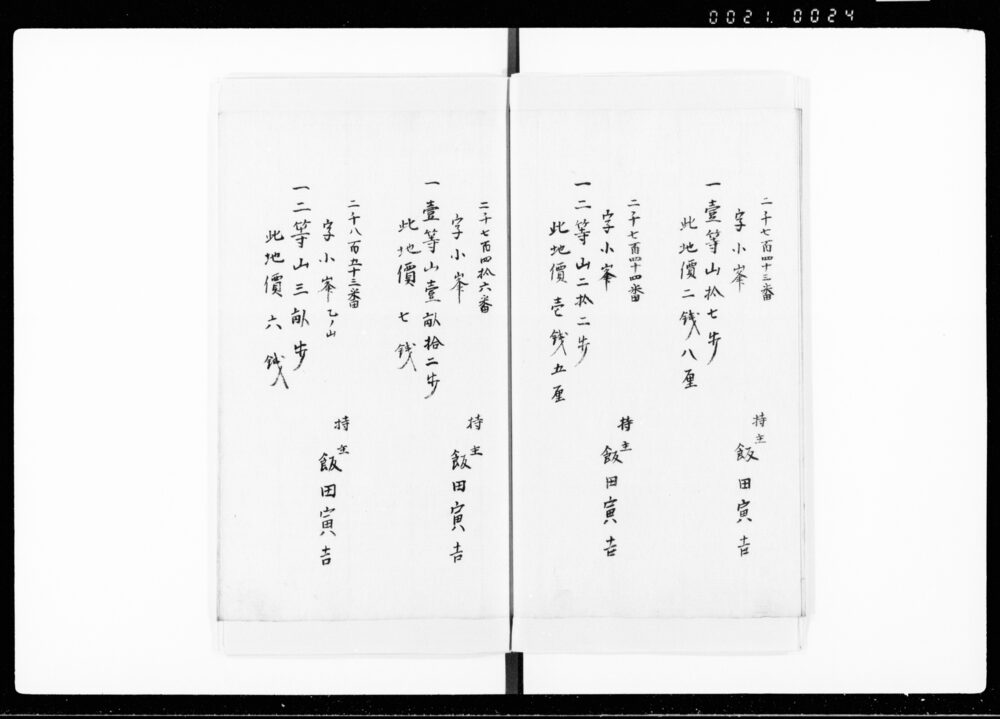 0021. 0024
二千七百四十三番
字小峯
一壹等山拾七歩
此地價二銭八厘
持主
飯田寅吉
二千七百四十四番
字小峯
一二等山二拾二歩
此地價壱銭五厘
持主
飯田寅吉
二千七百四拾六番
字小峯
一壹等山壹畝拾二歩
此地價七銭
持主
飯田寅吉
二千八百五十三番
字小峯乙ノ山
一二等山三畝歩
此地價六銭
持主
飯田寅吉